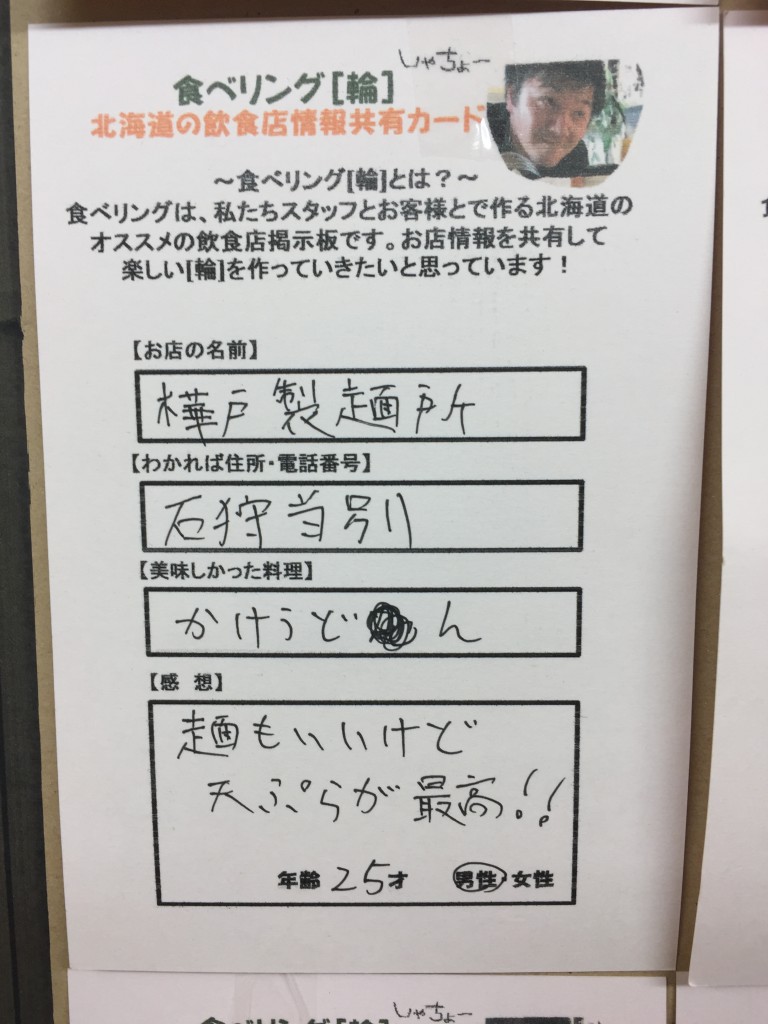 しゃちょー
食べリング[輪]
北海道の飲食店情報共有カード
～食べリング[輪]とは？～
食べリングは、私たちスタッフとお客様とで作る北海道の
オススメの飲食店掲示板です。お店情報を共有して
楽しい[輪]を作っていきたいと思っています！
【お店の名前】
樺戸製麺所
【わかれば住所・電話番号】
石狩当別
【美味しかった料理】
かけうどん
【感 想】
麺もいいけど
天ぷらが最高!!
年齢 25才 男性・女性
しゃちょー
食べリング[輪]